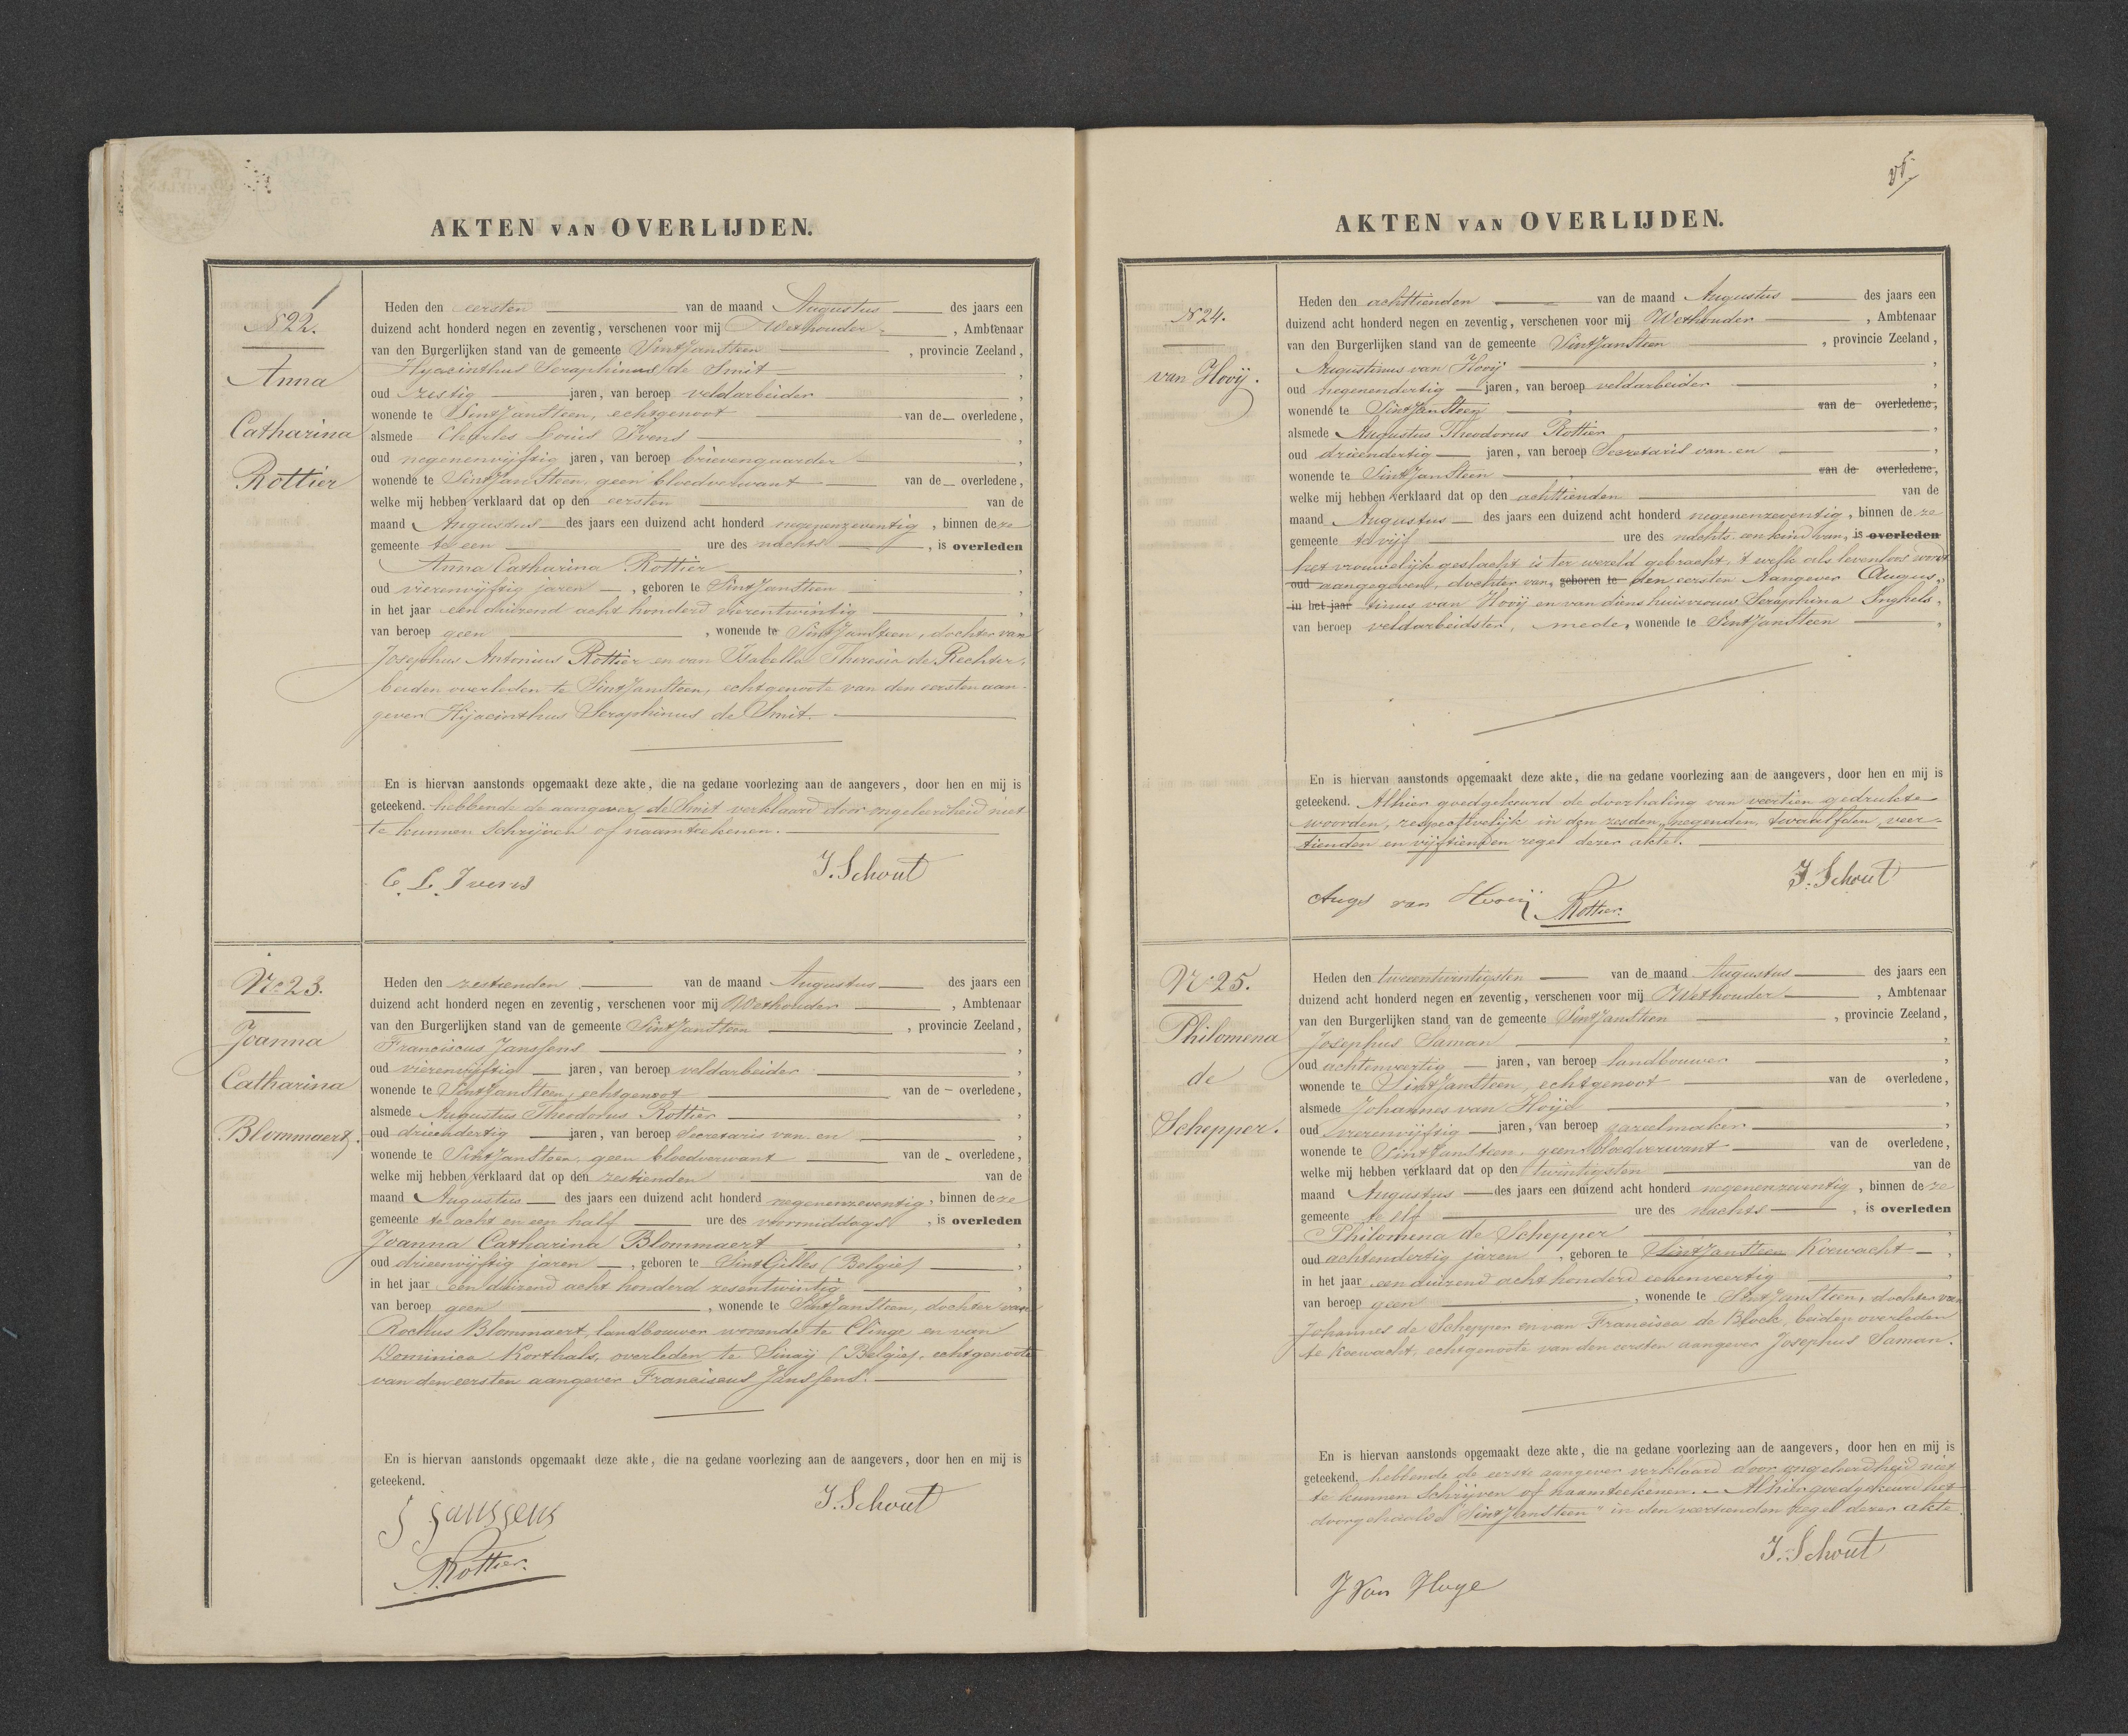 AKTEN VAN OVERLIJDEN.
N 22.
Anna
Catharina
Rottier
Heden den eersten van de maand Augustus des jaars een
duizend acht honderd negen en zeventig, verschenen voor mij Wethouder, Ambtenaar
van den Burgerlijken stand van de gemeente Sint Jansteen, provincie Zeeland,
Hyacinthus Seraphinus de Smit,
oud zestig jaren, van beroep veldarbeider,
wonende te Sint Jansteen, echtgenoot van de overledene,
alsmede Charles Louis Ivens,
oud negenenvijftig jaren, van beroep brievengaarder,
wonende te Sint Jansteen, geen bloedverwant van de overledene,
welke mij hebben verklaard dat op den eersten van de
maand Augustus des jaars een duizend acht honderd negenenzeventig, binnen deze
gemeente te een ure des nachts, is overleden
Anna Catharina Rottier,
oud vierenvijftig jaren, geboren te Sint Jansteen,
in het jaar een duizend acht honderd vierentwintig,
van beroep geen, wonende te Sint Jansteen, dochter van
Josephus Antonius Rottier en van Isabella Theresia de Rechter,
beiden overleden te Sint Jansteen, echtgenoote van den eersten aan-
gever Hijacinthus Seraphinus de Smit.
En is hiervan aanstonds opgemaakt deze akte, die na gedane voorlezing aan de aangevers, door hen en mij is
geteekend. hebbende de aangever de Smit verklaard door ongeleerdheid niet
te kunnen schrijven of naamteekenen.
C. L. Ivens
J. Schout
No 23.
Joanna
Catharina
Blommaert.
Heden den zestienden van de maand Augustus des jaars een
duizend acht honderd negen en zeventig, verschenen voor mij Wethouder, Ambtenaar
van den Burgerlijken stand van de gemeente Sint Jansteen, provincie Zeeland,
Franciscus Janssens,
oud vierenvijftig jaren, van beroep veldarbeider,
wonende te Sint Jansteen, echtgenoot van de overledene,
alsmede Augustus Theodorus Rottier,
oud drieendertig jaren, van beroep Secretaris van en,
wonende te Sint Jansteen, geen bloedverwant van de overledene,
welke mij hebben verklaard dat op den zestienden van de
maand Augustus des jaars een duizend acht honderd negenenzeventig, binnen deze
gemeente te acht en een half ure des voormiddags, is overleden
Joanna Catharina Blommaert,
oud drieenvijftig jaren, geboren te Sint Gilles (Belgie),
in het jaar een duizend acht honderd zesentwintig,
van beroep geen, wonende te Sint Jansteen, dochter van
Rochus Blommaert, landbouwer wonende te Clinge en van
Dominica Korthals, overleden te Sinaij (Belgie), echtgenoote
van den eersten aangever Franciscus Janssens.
En is hiervan aanstonds opgemaakt deze akte, die na gedane voorlezing aan de aangevers, door hen en mij is
geteekend.
J. Schout
Janssens
A Rottier.
AKTEN VAN OVERLIJDEN.
N 24.
van Hooij.
Heden den achttienden van de maand Augustus des jaars een
duizend acht honderd negen en zeventig, verschenen voor mij Wethouder, Ambtenaar
van den Burgerlijken stand van de gemeente Sint Jansteen, provincie Zeeland,
Augustinus van Hooij,
oud negenendertig jaren, van beroep veldarbeider,
wonende te Sint Jansteen van de overledene,
alsmede Augustus Theodorus Rottier,
oud drieendertig jaren, van beroep Secretaris van en
wonende te Sint Jansteen van de overledene,
welke mij hebben verklaard dat op den achttienden van de
maand Augustus des jaars een duizend acht honderd negenenzeventig, binnen deze
gemeente te vijf ure des nachts een kind van, is overleden
het vrouwelijk geslacht is ter wereld gebracht, 't welk als levenloos wordt
oud aangegeven, dochter van, geboren te den eersten Aangever Augus-
in het jaar tinus van Hooij en van diens huisvrouw Seraphina Inghels,
van beroep veldarbeidster, mede, wonende te Sint Jansteen,
En is hiervan aanstonds opgemaakt deze akte, die na gedane voorlezing aan de aangevers, door hen en mij is
geteekend. Alhier goedgekeurd de doorhaling van veertien gedrukte
woorden, respectivelijk in den zesden, negenden, twaalfden, veer-
tienden en vijftienden regel dezer akte.
J. Schout
Augs van Hooij
A Rottier.
No 25.
Philomena
de
Schepper.
Heden den tweeentwintigsten van de maand Augustus des jaars een
duizend acht honderd negen en zeventig, verschenen voor mij Wethouder, Ambtenaar
van den Burgerlijken stand van de gemeente Sint Jansteen, provincie Zeeland,
Josephus Saman,
oud achtenveertig jaren, van beroep landbouwer,
wonende te Sint Jansteen, echtgenoot van de overledene,
alsmede Johannes van Hoije,
oud vierenvijftig jaren, van beroep gareelmaker,
wonende te Sint Jansteen, geen bloedverwant van de overledene,
welke mij hebben verklaard dat op den twintigsten van de
maand Augustus des jaars een duizend acht honderd negenenzeventig, binnen deze
gemeente te elf ure des nachts, is overleden
Philomena de Schepper,
oud achtendertig jaren, geboren te Sint Jansteen Koewacht,
in het jaar een duizend acht honderd eenenveertig,
van beroep geen, wonende te Sint Jansteen, dochter van
Johannes de Schepper en van Francisca de Block, beiden overleden
te Koewacht, echtgenoote van den eersten aangever Josephus Saman.
En is hiervan aanstonds opgemaakt deze akte, die na gedane voorlezing aan de aangevers, door hen en mij is
geteekend, hebbende de eerste aangever verklaard door ongeleerdheid niet
te kunnen schrijven of naamteekenen. Alhier goedgekeurd het
doorgehaalde "Sint Jansteen" in den veertienden regel dezer akte.
J. Schout
J Van Hoye